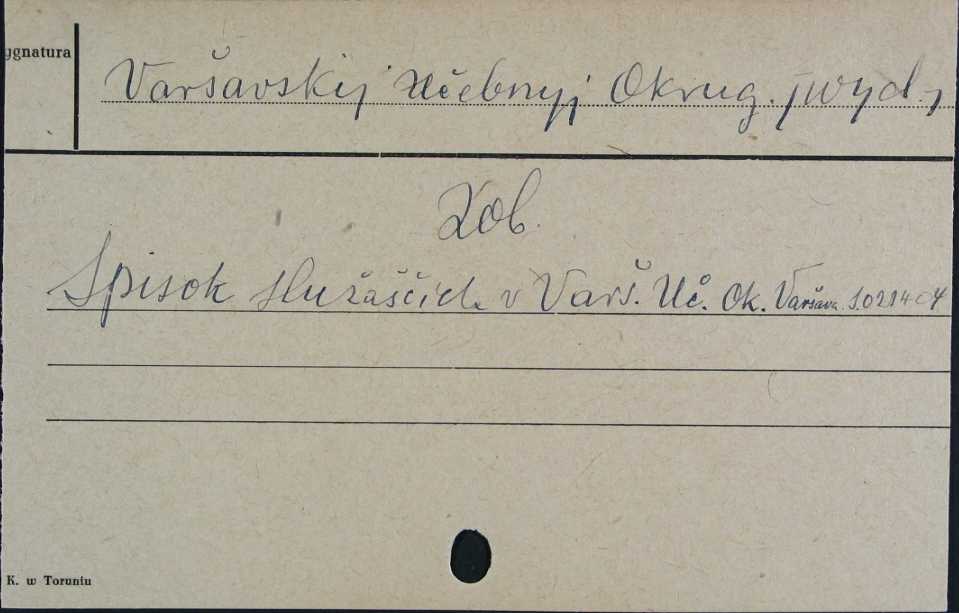 ygnatura
Varšavskij Učebnyj Okrug. /wyd./
Zob.
Spisok služaščich v Varš. Uč. Ok. Varšava.
K. w Toruniu